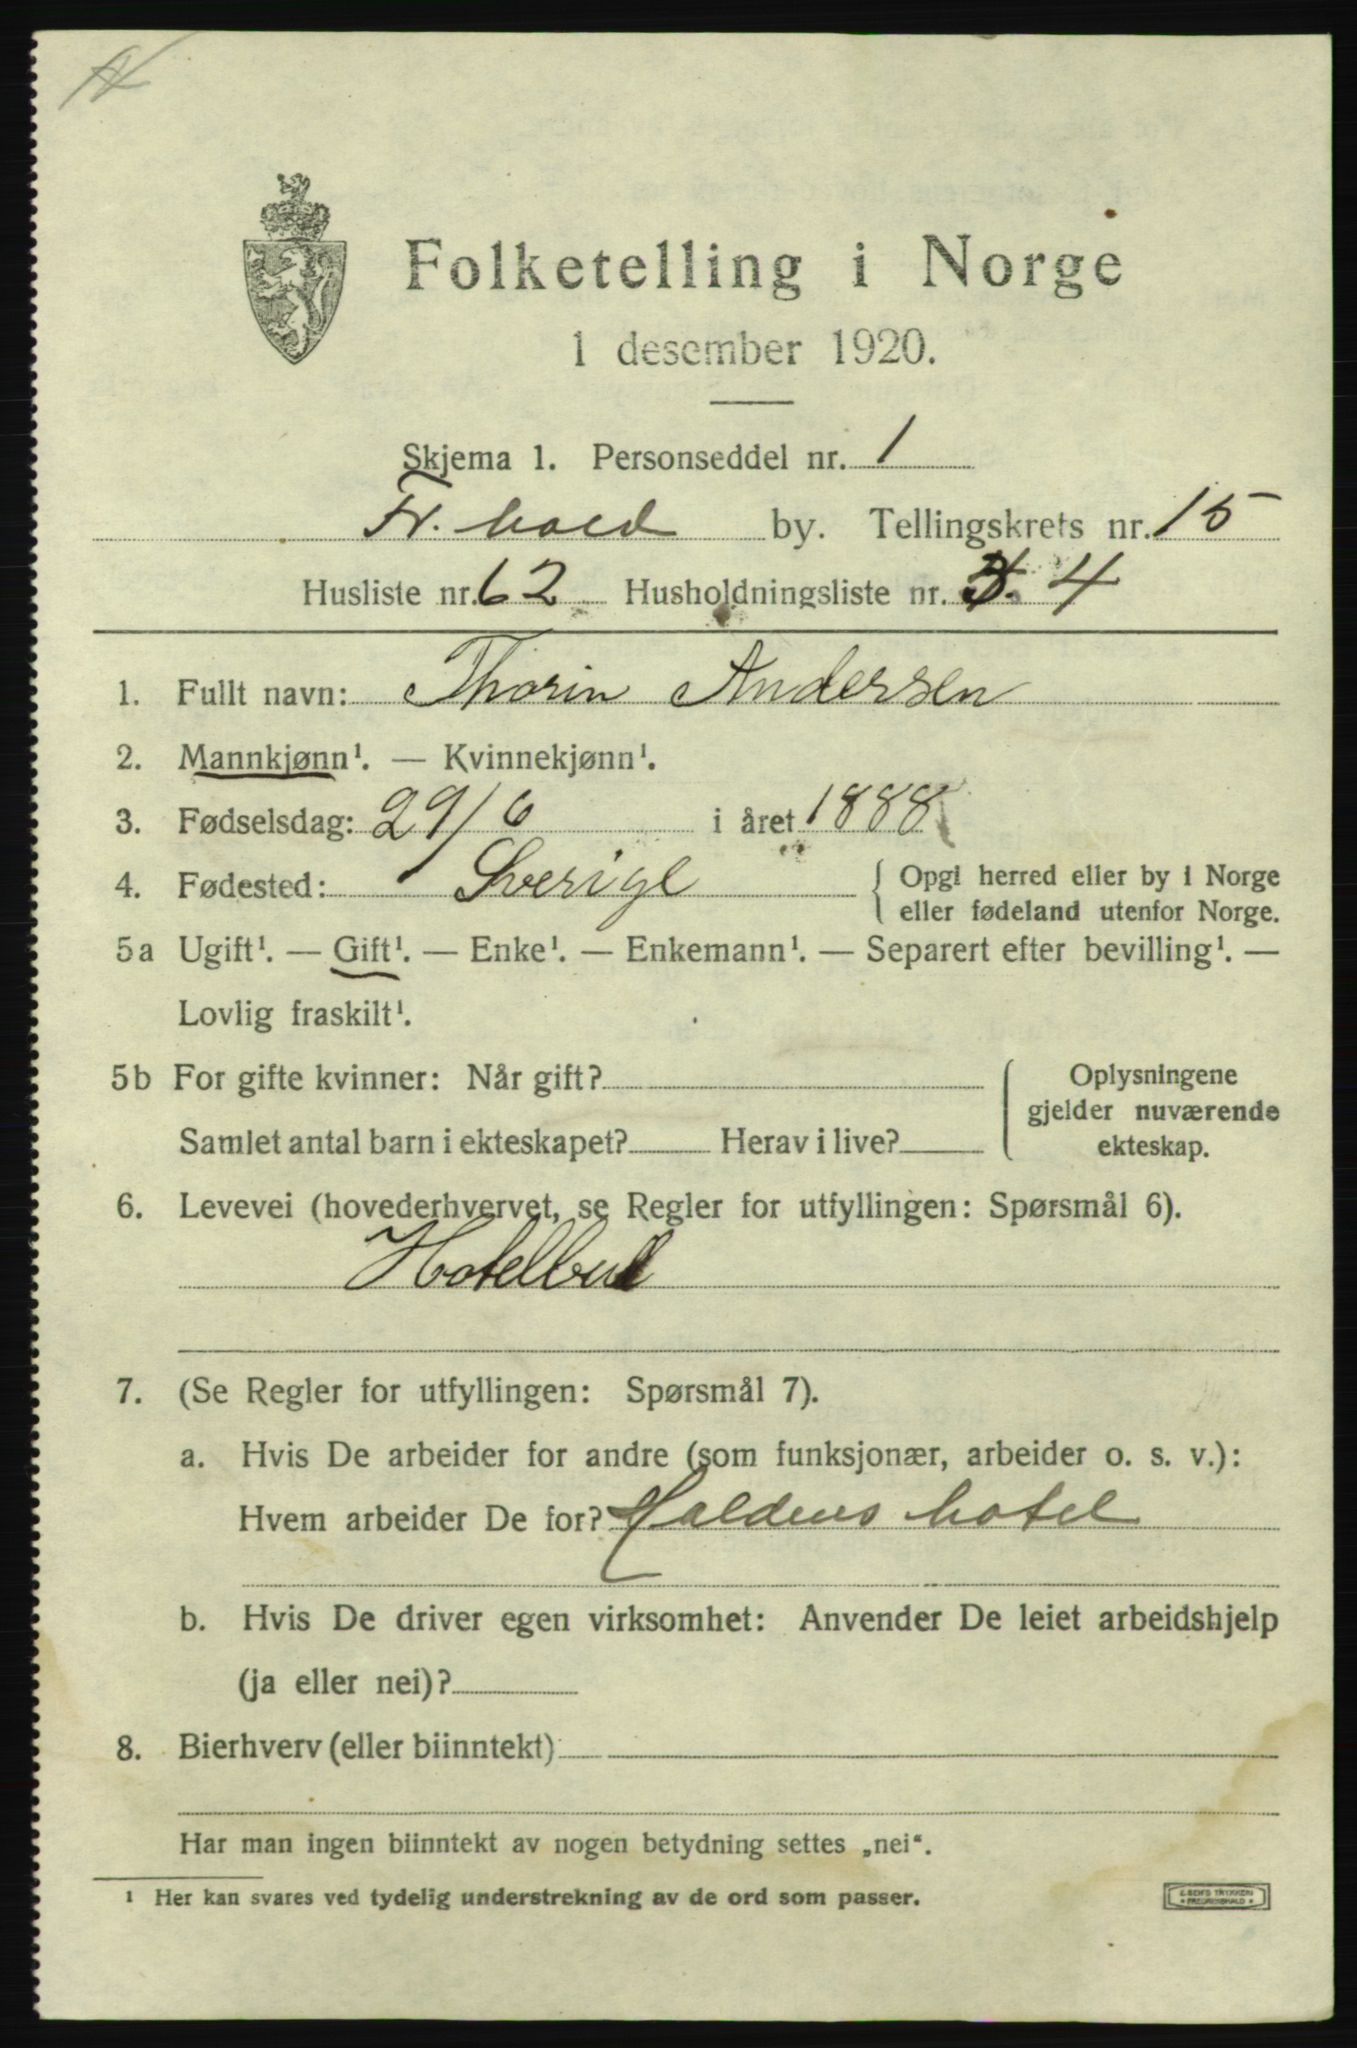 Folketelling i Norge
1 desember 1920.
Skjema 1. Personseddel nr. 1
Fr. hald by. Tellingskrets nr. 15
Husliste nr. 62 Husholdningsliste nr. 4
1. Fullt navn: Thorin Andersen
2. Mannkjønn¹. — Kvinnekjønn¹.
3. Fødselsdag: 29/6 i året 1888
4. Fødested: Sverige { Opgi herred eller by i Norge
eller fødeland utenfor Norge.
5a Ugift¹. — Gift¹. — Enke¹. — Enkemann¹. — Separert efter bevilling¹. —
Lovlig fraskilt¹.
5b For gifte kvinner: Når gift?
Samlet antal barn i ekteskapet? Herav i live?
Oplysningene
gjelder nuværende
ekteskap.
6. Levevei (hovederhvervet, se Regler for utfyllingen: Spørsmål 6).
Hotelbud
7. (Se Regler for utfyllingen: Spørsmål 7).
a. Hvis De arbeider for andre (som funksjonær, arbeider o. s. v.):
Hvem arbeider De for? Haldens hotel
b. Hvis De driver egen virksomhet: Anvender De leiet arbeidshjelp
(ja eller nei)?
8. Bierhverv (eller biinntekt)
Har man ingen biinntekt av nogen betydning settes „nei“.
¹ Her kan svares ved tydelig understrekning av de ord som passer.